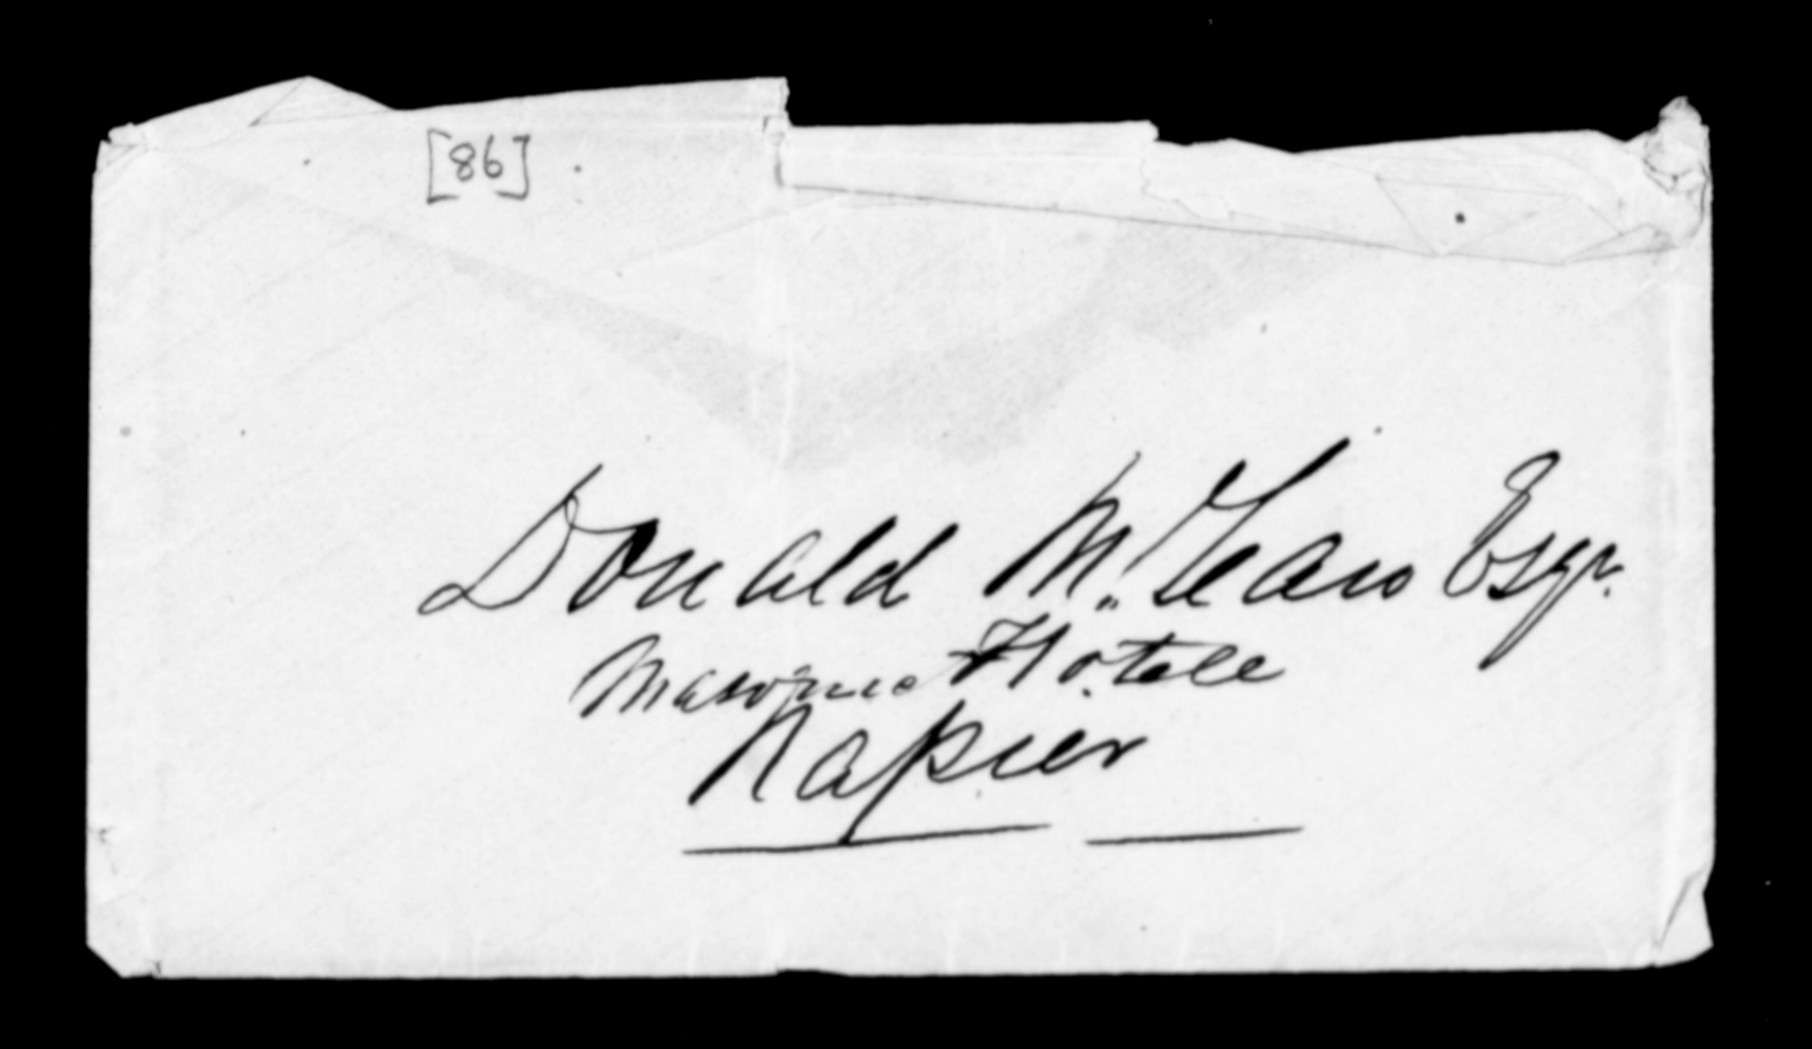 [86]
Donald McLean Esqr.
Masonic Hotele
Napier